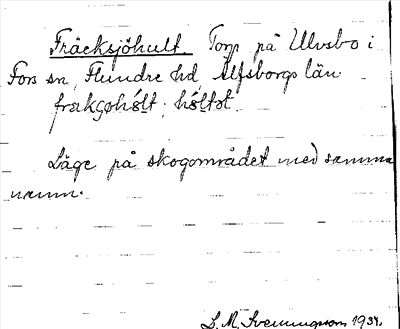 Fräcksjöhult. Torp på Ulvsbo i
Fors sn, Flundre hd, Älfsborgs län.
Läge på skogområdet med samma
namn.
S. M. Svenningsson 1934.